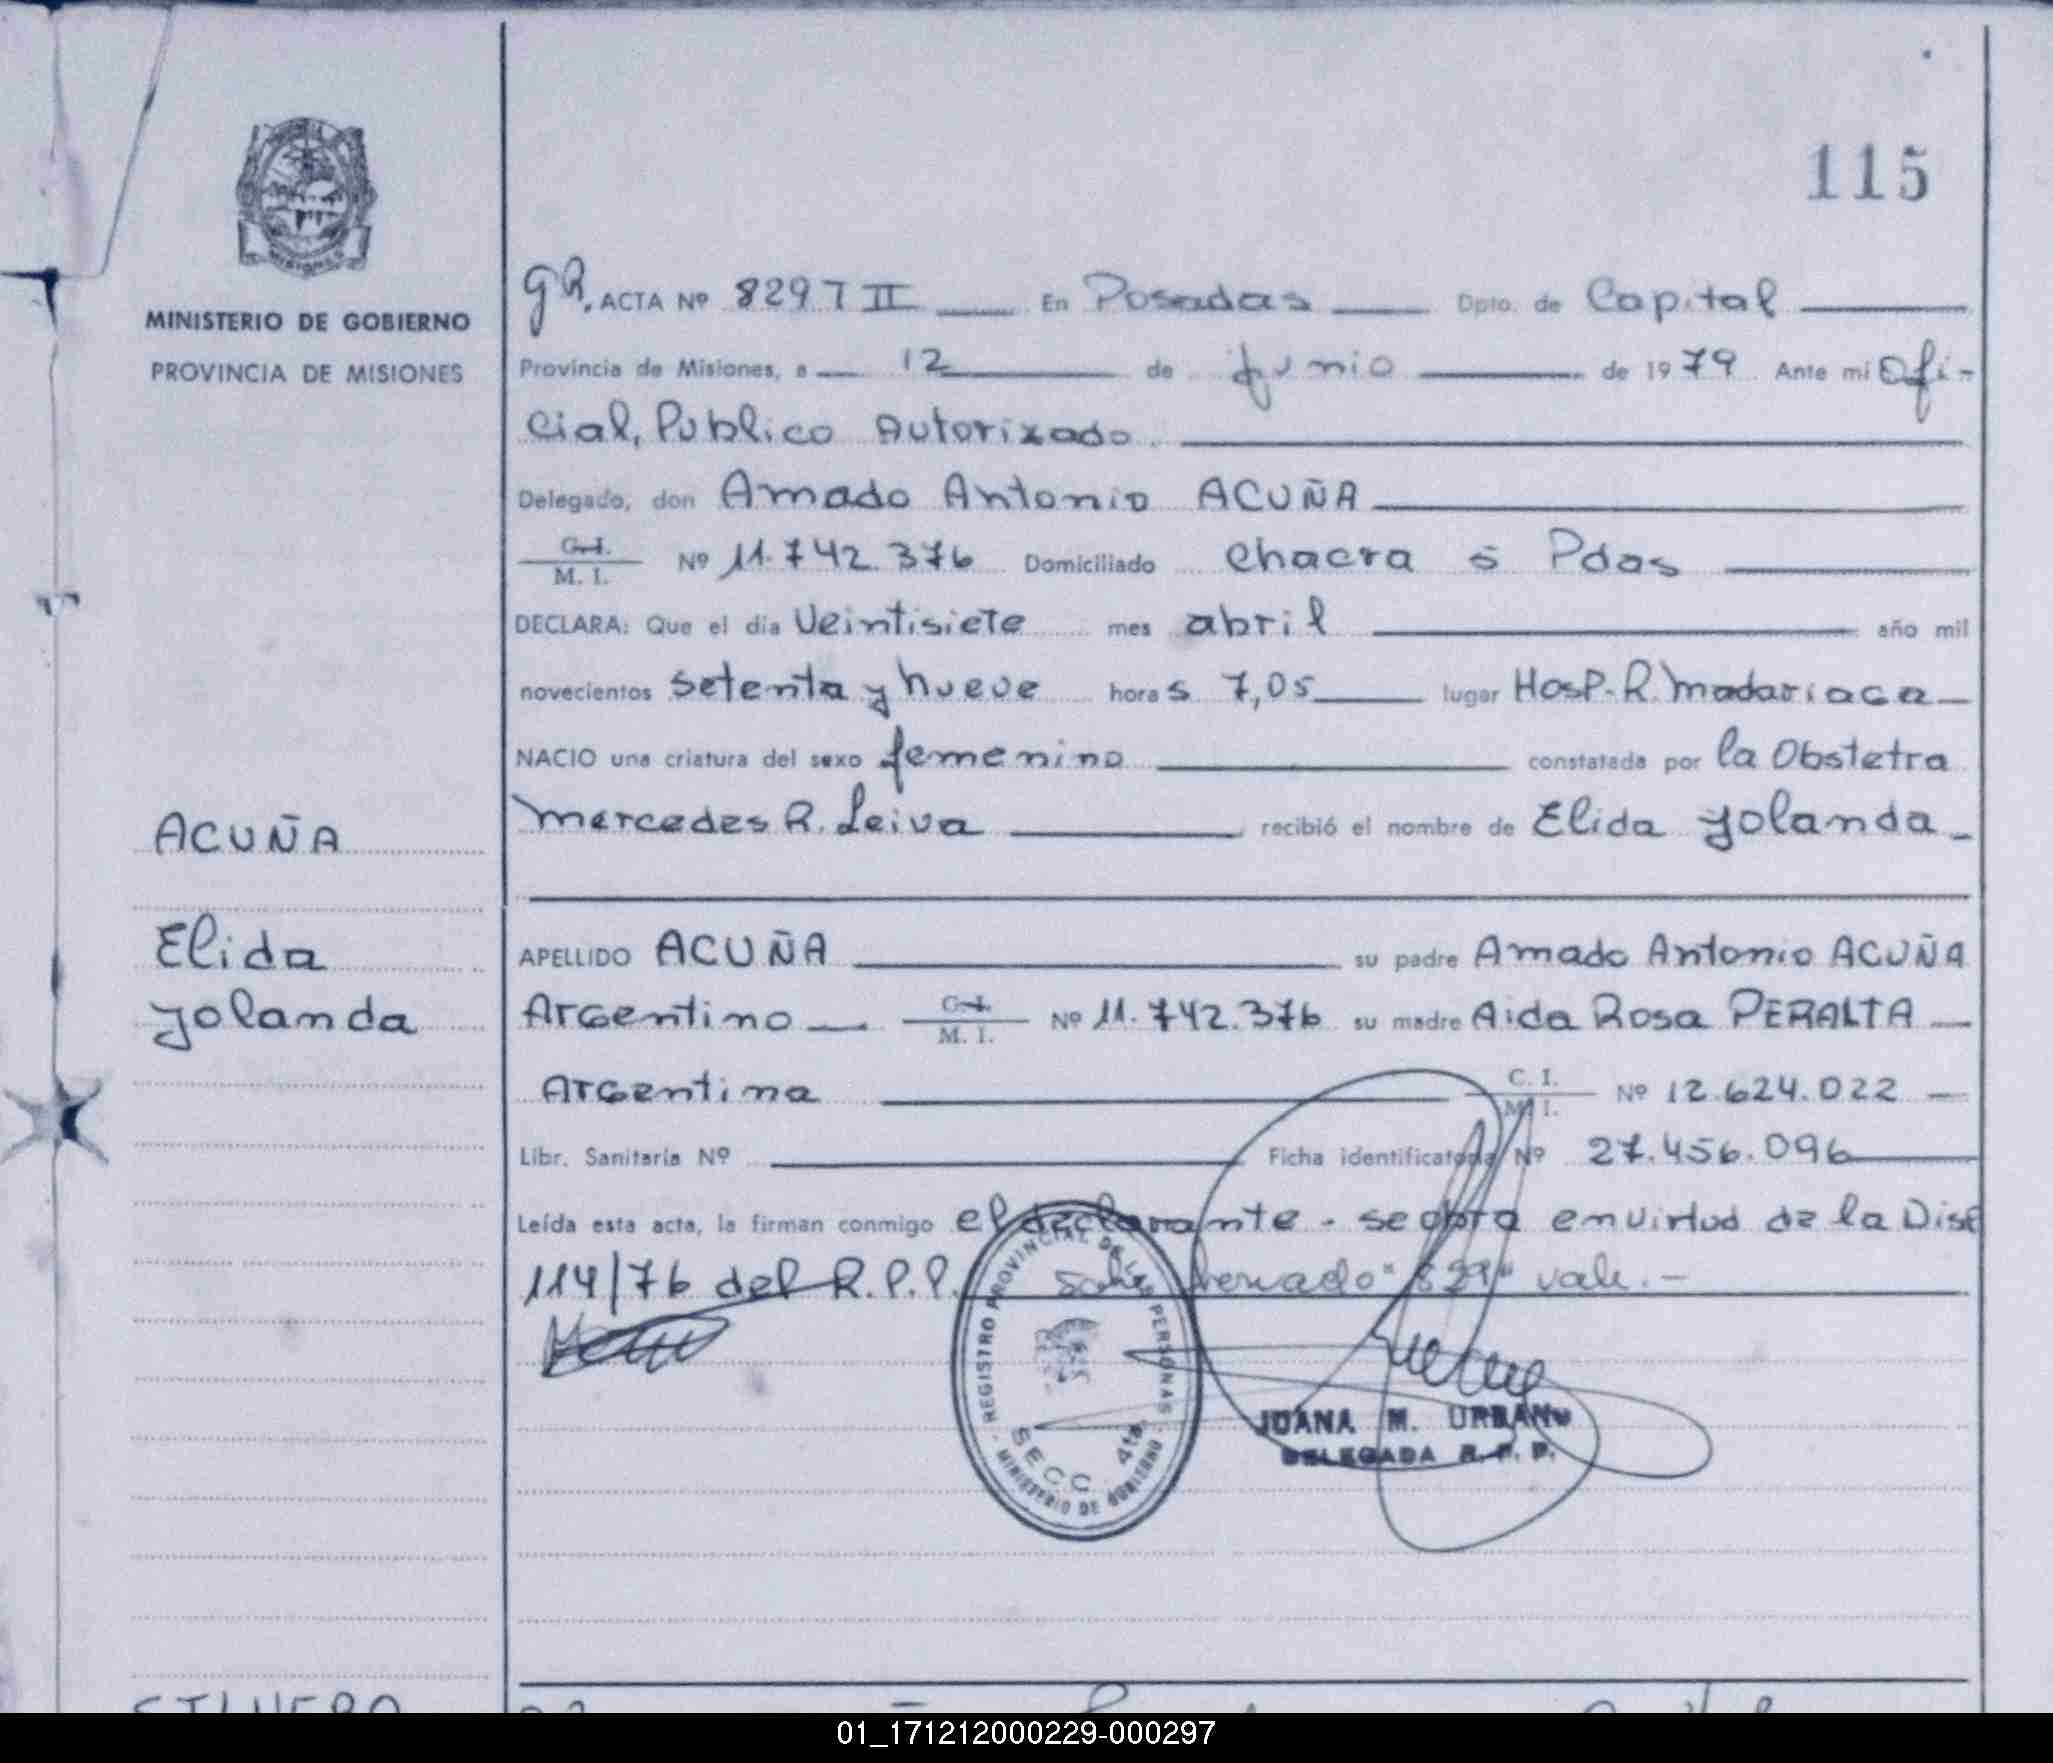 115
MINISTERIO DE GOBIERNO
PROVINCIA DE MISIONES
ACTA Nº 8297 II En Posadas Dpto. de Capital
Provincia de Misiones, a 12 de junio de 1979 Ante mi Ofi-
cial, Publico Autorizado
Delegado, don Amado Antonio ACUÑA
C.I.
M. I. Nº 11.742.376 Domiciliado Chacra 5 Pdas
DECLARA: Que el día Veintisiete mes abril año mil
novecientos setenta y nueve horas 7,05 lugar Hosp. R. Madariaga
NACIO una criatura del sexo femenino constatada por la Obstetra
Mercedes R. Leiva recibió el nombre de Elida Yolanda
ACUÑA
Elida
Yolanda
APELLIDO ACUÑA su padre Amado Antonio ACUÑA
Argentino C.I.
M. I. Nº 11.742.376 su madre Aida Rosa PERALTA
Argentina C. I.
M. I. Nº 12.624.022
Libr. Sanitaria Nº Ficha identificatoria Nº 27.456.096
Leída esta acta, la firman conmigo el declarante - se obra en virtud de la Disp
114/76 del R.P.P. "829" vale.-
REGISTRO PROVINCIAL DE LAS PERSONAS
SECC. 4ta.
MINISTERIO DE GOBIERNO
JUANA M. URBANO
DELEGADA R. P. P.
01_171212000229-000297